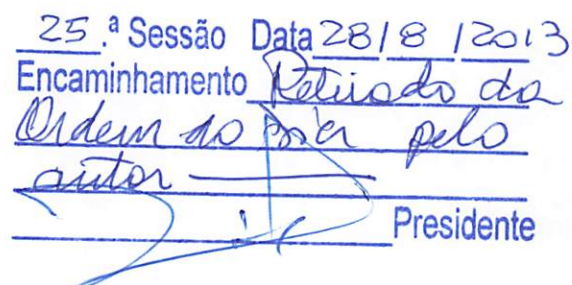 25.ª Sessão Data 28/8/2013
Encaminhamento Retirado da
Ordem do Dia pelo
autor
Presidente